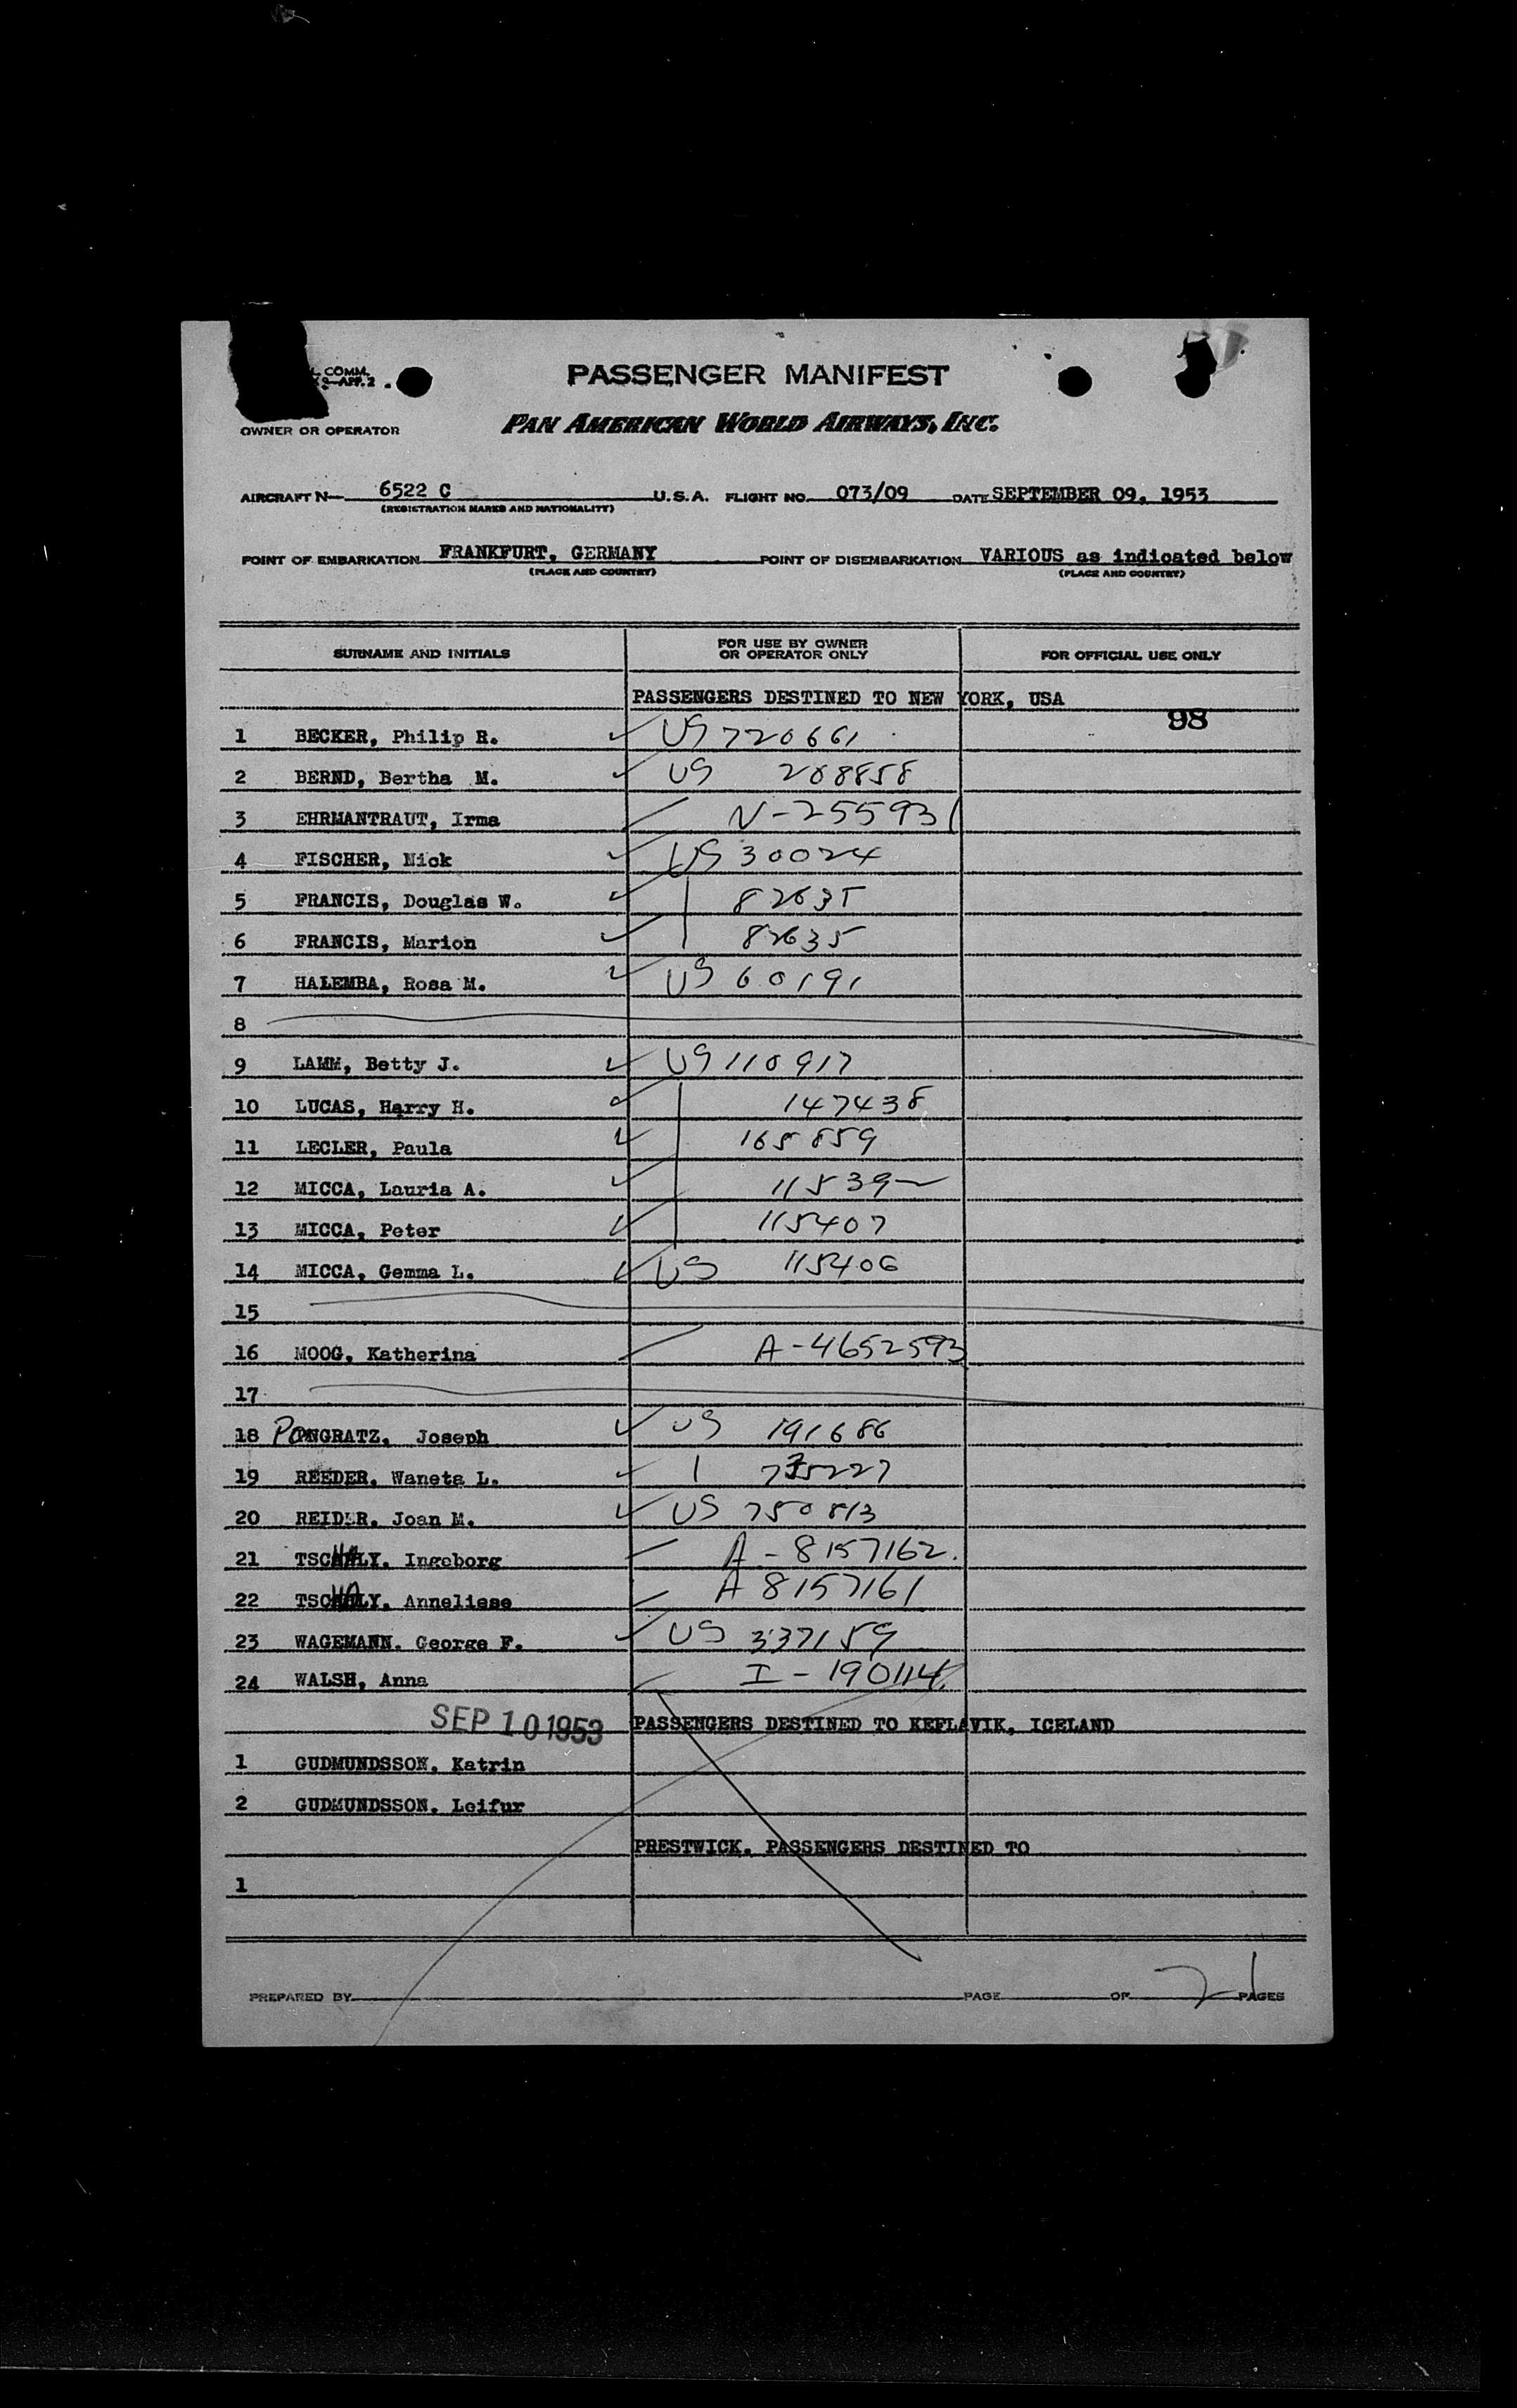 COMM.
APP. 2
PASSENGER MANIFEST
OWNER OR OPERATOR
PAN AMERICAN WORLD AIRWAYS, INC.
AIRCRAFT N— 6522 C U.S.A. FLIGHT NO. 073/09 DATE SEPTEMBER 09, 1953
(REGISTRATION MARKS AND NATIONALITY)
POINT OF EMBARKATION FRANKFURT, GERMANY POINT OF DISEMBARKATION VARIOUS as indicated below
(PLACE AND COUNTRY) (PLACE AND COUNTRY)
SURNAME AND INITIALS FOR USE BY OWNER OR OPERATOR ONLY FOR OFFICIAL USE ONLY
PASSENGERS DESTINED TO NEW YORK, USA
98
1 BECKER, Philip R. ✓ US 720661
2 BERND, Bertha M. ✓ US 288858
3 EHRMANTRAUT, Irma N-255931
4 FISCHER, Nick ✓ US 30024
5 FRANCIS, Douglas W. ✓ 82635
6 FRANCIS, Marion ✓ 82635
7 HALEMBA, Rosa M. ✓ US 60191
8
9 LAMM, Betty J. ✓ US 110917
10 LUCAS, Harry H. ✓ 147438
11 LECLER, Paula ✓ 165859
12 MICCA, Lauria A. ✓ 11539
13 MICCA, Peter ✓ 115407
14 MICCA, Gemma L. ✓ US 115406
15
16 MOOG, Katherina A-4652593
17
18 PONGRATZ, Joseph ✓ US 191686
19 REEDER, Waneta L. ✓ 735227
20 REIDER, Joan M. ✓ US 750813
21 TSCHALY, Ingeborg A-8157162.
22 TSCHALY, Anneliese A 8157161
23 WAGEMANN, George F. ✓ US 337159
24 WALSH, Anna I-190114
SEP 10 1953 PASSENGERS DESTINED TO KEFLAVIK, ICELAND
1 GUDMUNDSSON, Katrin
2 GUDMUNDSSON, Leifur
PRESTWICK, PASSENGERS DESTINED TO
1
PREPARED BY PAGE OF PAGES